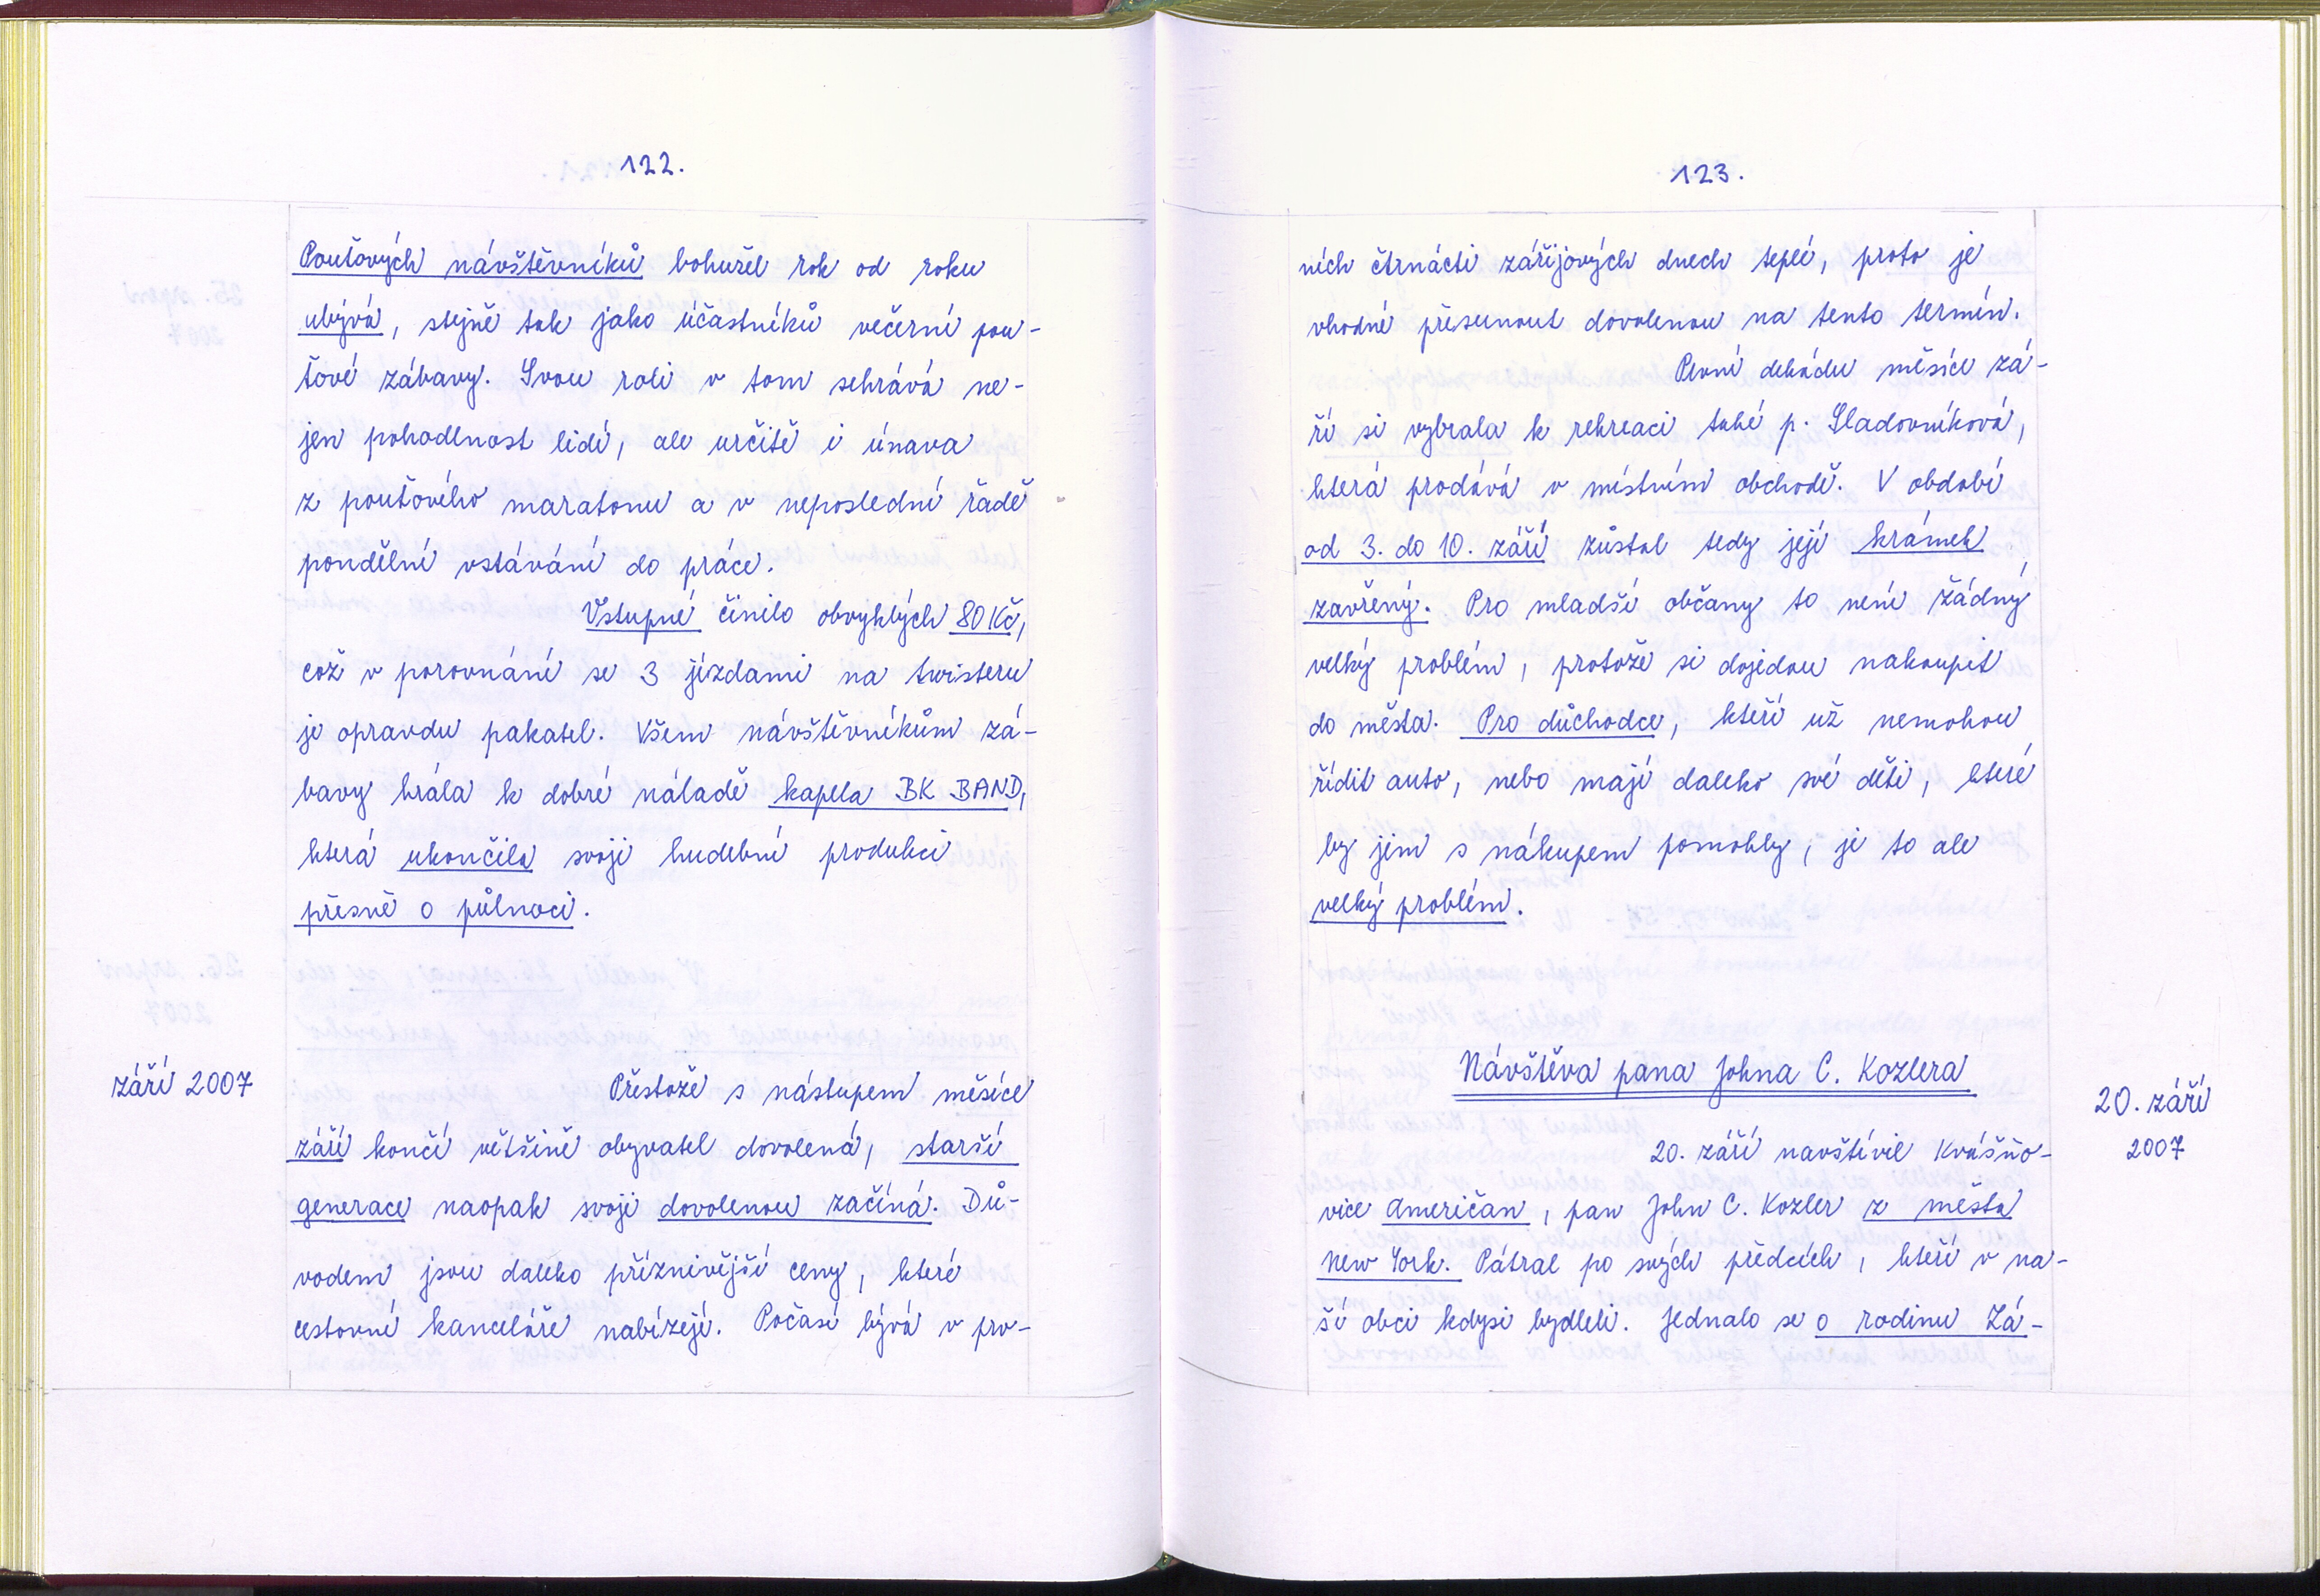 122.
Pouťových návštěvníků bohužel rok od roku
ubývá, stejně tak jako účastníků večerní pou-
ťové zábavy. Svou roli v tom sehrává ne-
jen pohodlnost lidí, ale určitě i únava
z pouťového maratonu a v neposlední řadě
pondělní vstávání do práce.
Vstupné činilo obvyklých 80 Kč,
což v porovnání se 3 jízdami na twisteru
je opravdu pakatel. Všem návštěvníkům zá-
bavy hrála k dobré náladě kapela BK BAND,
která ukončila svoji hudební produkci
přesně o půlnoci.
září 2007
Přestože s nástupem měsíce
září končí většině obyvatel dovolená, starší
generace naopak svoji dovolenou začíná. Dů-
vodem jsou daleko příznivější ceny, které
cestovní kanceláře nabízejí. Počasí bývá v prv-
123.
ních čtrnácti zářijových dnech teplé, proto je
vhodné přesunout dovolenou na tento termín.
První dekádu měsíce zá-
ří si vybrala k rekreaci také p. Sladovníková,
která prodává v místním obchodě. V období
od 3. do 10. září zůstal tedy její krámek
zavřený. Pro mladší občany to není žádný
velký problém, protože si dojedou nakoupit
do města. Pro důchodce, kteří už nemohou
řídit auto, nebo mají daleko své děti, které
by jim s nákupem pomohly, je to ale
velký problém.
Návštěva pana Johna C. Kozlera
20. září
2007
20. září navštívil Kvášňo-
vice Američan, pan John C. Kozler z města
New York. Pátral po svých předcích, kteří v na-
ší obci kdysi bydleli. Jednalo se o rodinu Zá-